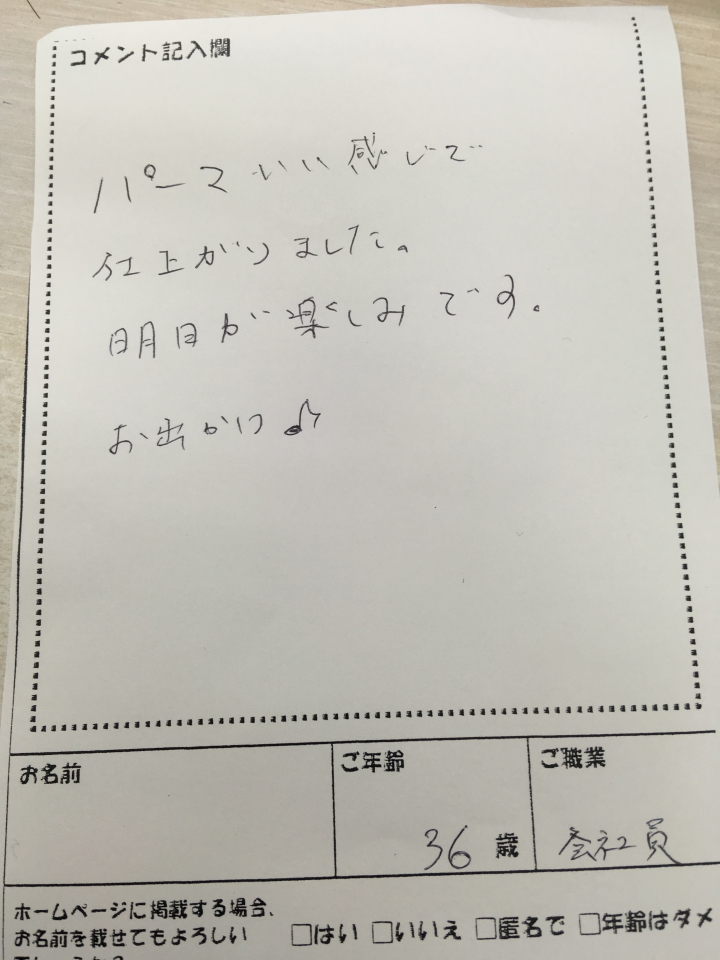 コメント記入欄
パーマいい感じで
仕上がりました。
明日が楽しみです。
お出かけ♪
お名前
ご年齢
ご職業
36 歳
会社員
ホームページに掲載する場合、
お名前を載せてもよろしい
□はい □いいえ □匿名で □年齢はダメ